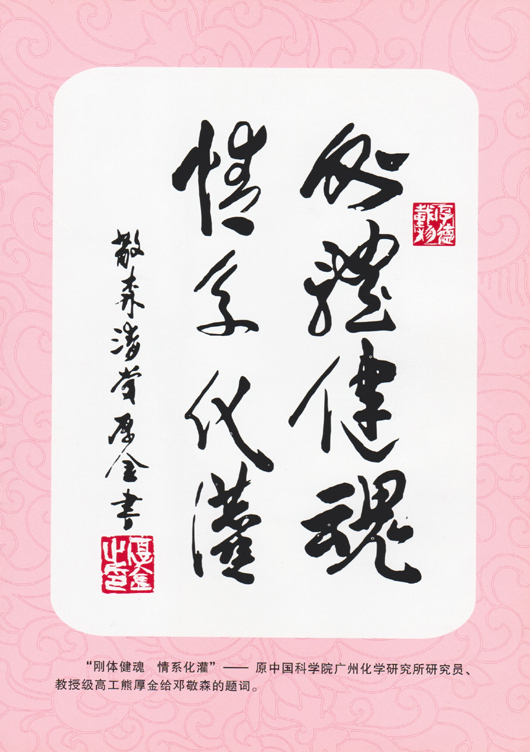 刚體健魂
情系化灌
敬森清赏厚金書
厚德載物
厚金之印
“刚体健魂　情系化灌”—— 原中国科学院广州化学研究所研究员、
教授级高工熊厚金给邓敬森的题词。